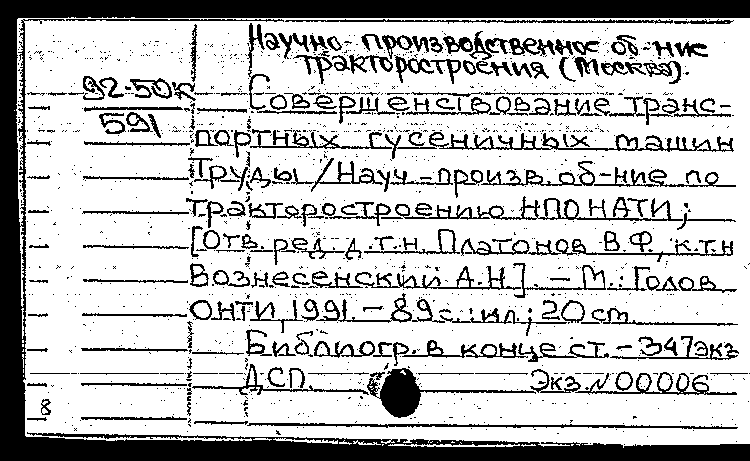 Научно-производственное об-ние
тракторостроения (Москва).
92-50к
Совершенствование транс-
591
портных гусеничных машин
Труды /Науч-произв. об-ние по
тракторостроению НПО НАТИ;
[Отв. ред. д.т.н. Платонов В.Ф., к.т.н
Вознесенский А.Н]. - М.: Голов
ОНТИ, 1991. - 89с.: ил; 20 cm.
Библиогр. в конце ст. - 347экз
ДСП. Экз. N 00006
8